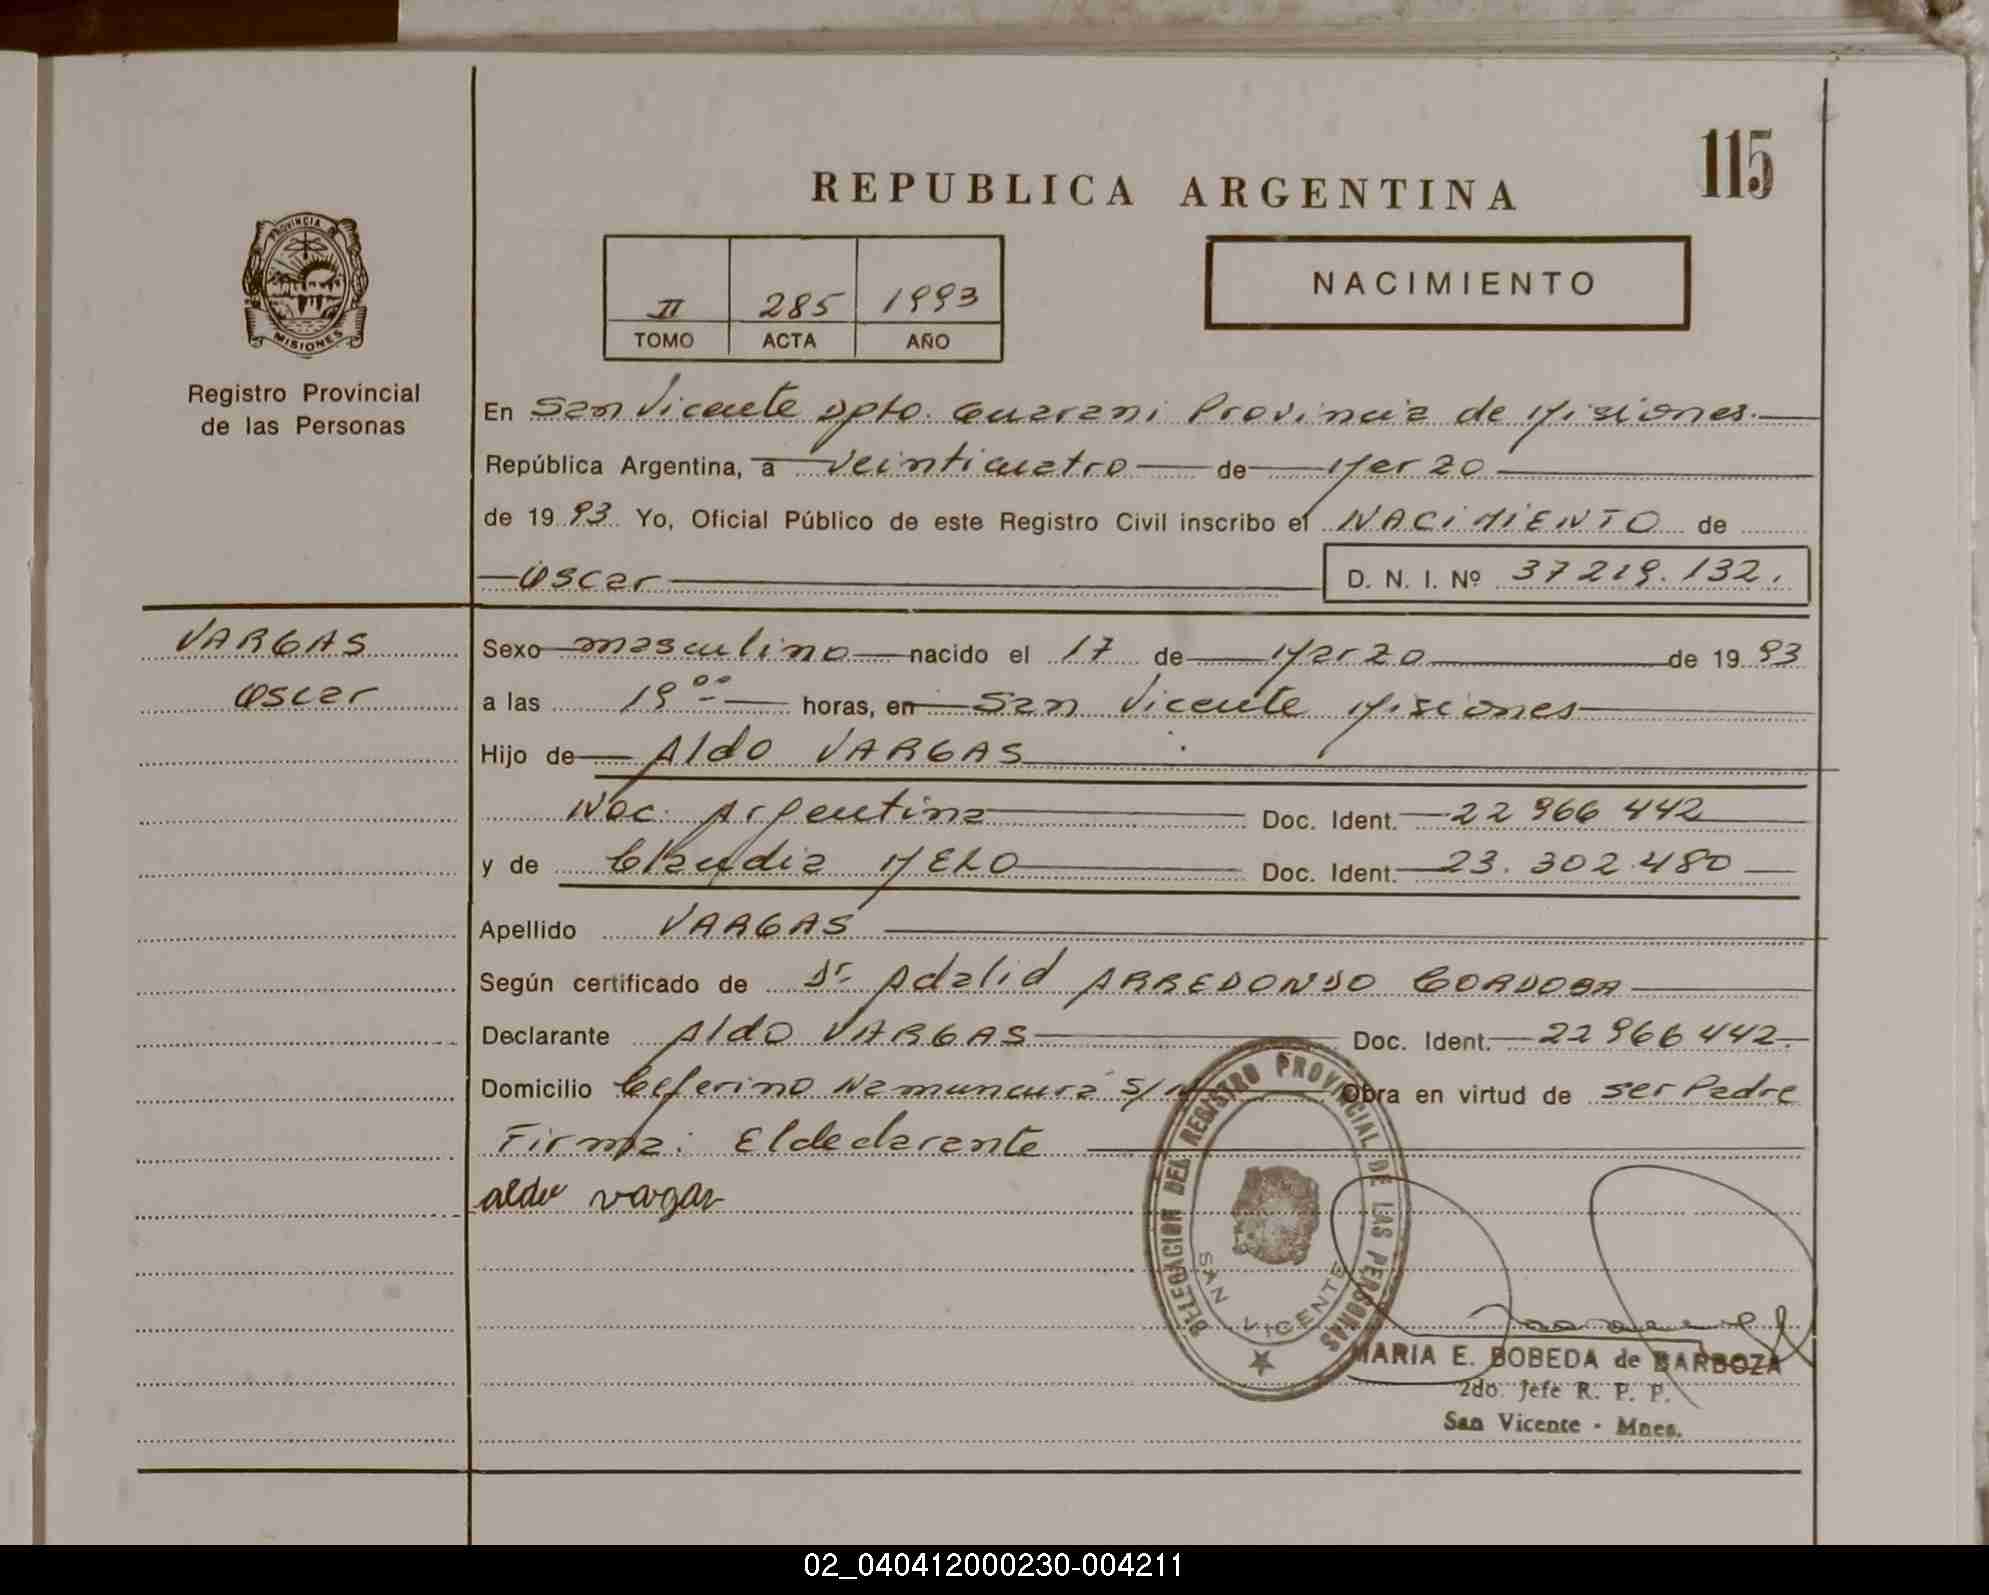 115
REPUBLICA ARGENTINA
PROVINCIA DE
MISIONES
Registro Provincial
de las Personas
II 285 1993
TOMO ACTA AÑO
NACIMIENTO
En San Vicente Dpto. Guarani Provincia de Misiones.
República Argentina, a veinticuatro de Marzo
de 1993. Yo, Oficial Público de este Registro Civil inscribo el NACIMIENTO de
Oscar D. N. I. Nº 37219.132.
VARGAS
Oscar
Sexo masculino nacido el 17 de Marzo de 1993
a las 19 00 horas, en San Vicente Misiones
Hijo de Aldo VARGAS
Nac. Argentina Doc. Ident. 22 966 442
y de Claudia MELO Doc. Ident. 23.302.480
Apellido VARGAS
Según certificado de Dr Adalid ARREDONDO CORDOBA
Declarante Aldo VARGAS Doc. Ident. 22 966 442.
Domicilio Ceferino Namuncurá s/N Obra en virtud de ser Padre
Firma: El declarante
aldo vargas
DELEGACION DEL REGISTRO PROVINCIAL DE LAS PERSONAS
SAN VICENTE
MARIA E. BOBEDA de BARBOZA
2do. Jefe R. P. P.
San Vicente - Mnes.
02_040412000230-004211